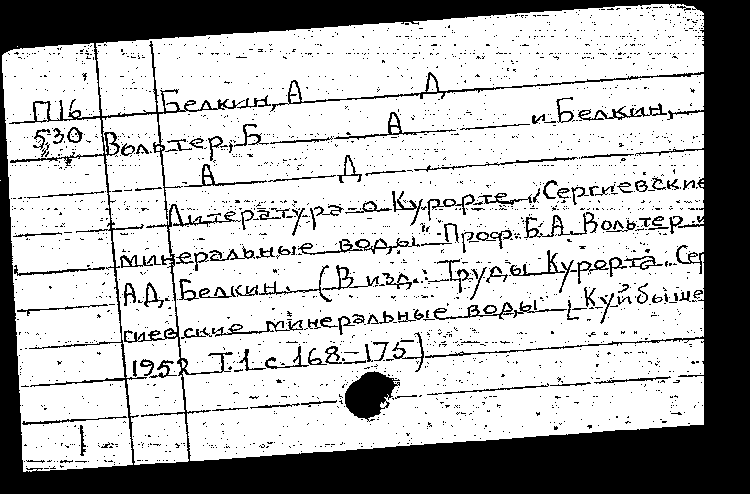 П16 Белкин, А Д
530 Вольтер, Б А и Белкин,
А Д
Литература о Курорте „Сергиевские
минеральные воды" Проф. Б.А. Вольтер и
А.Д. Белкин. (В изд.: Труды Курорта Сер
гиевские минеральные воды [Куйбыше
1952 Т.1 с. 168.-175)